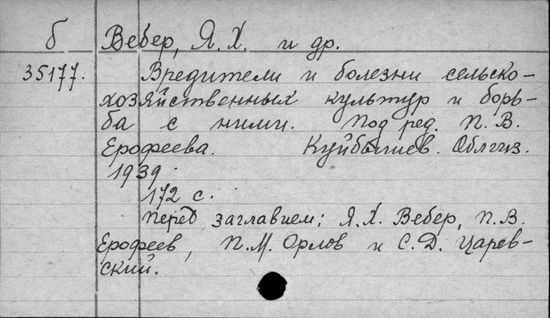 б Вебер, Я. Х. и др.
35177. Вредители и болезни сельско-
хозяйственных культур и борь-
ба с ними. Под ред. П. В.
Ерофеева. Куйбышев. Облгиз.
1939.
172 с.
Перед заглавием: Я. Х. Вебер, П. В.
Ерофеев, П. М. Орлов и С. Д. Царев-
ский.